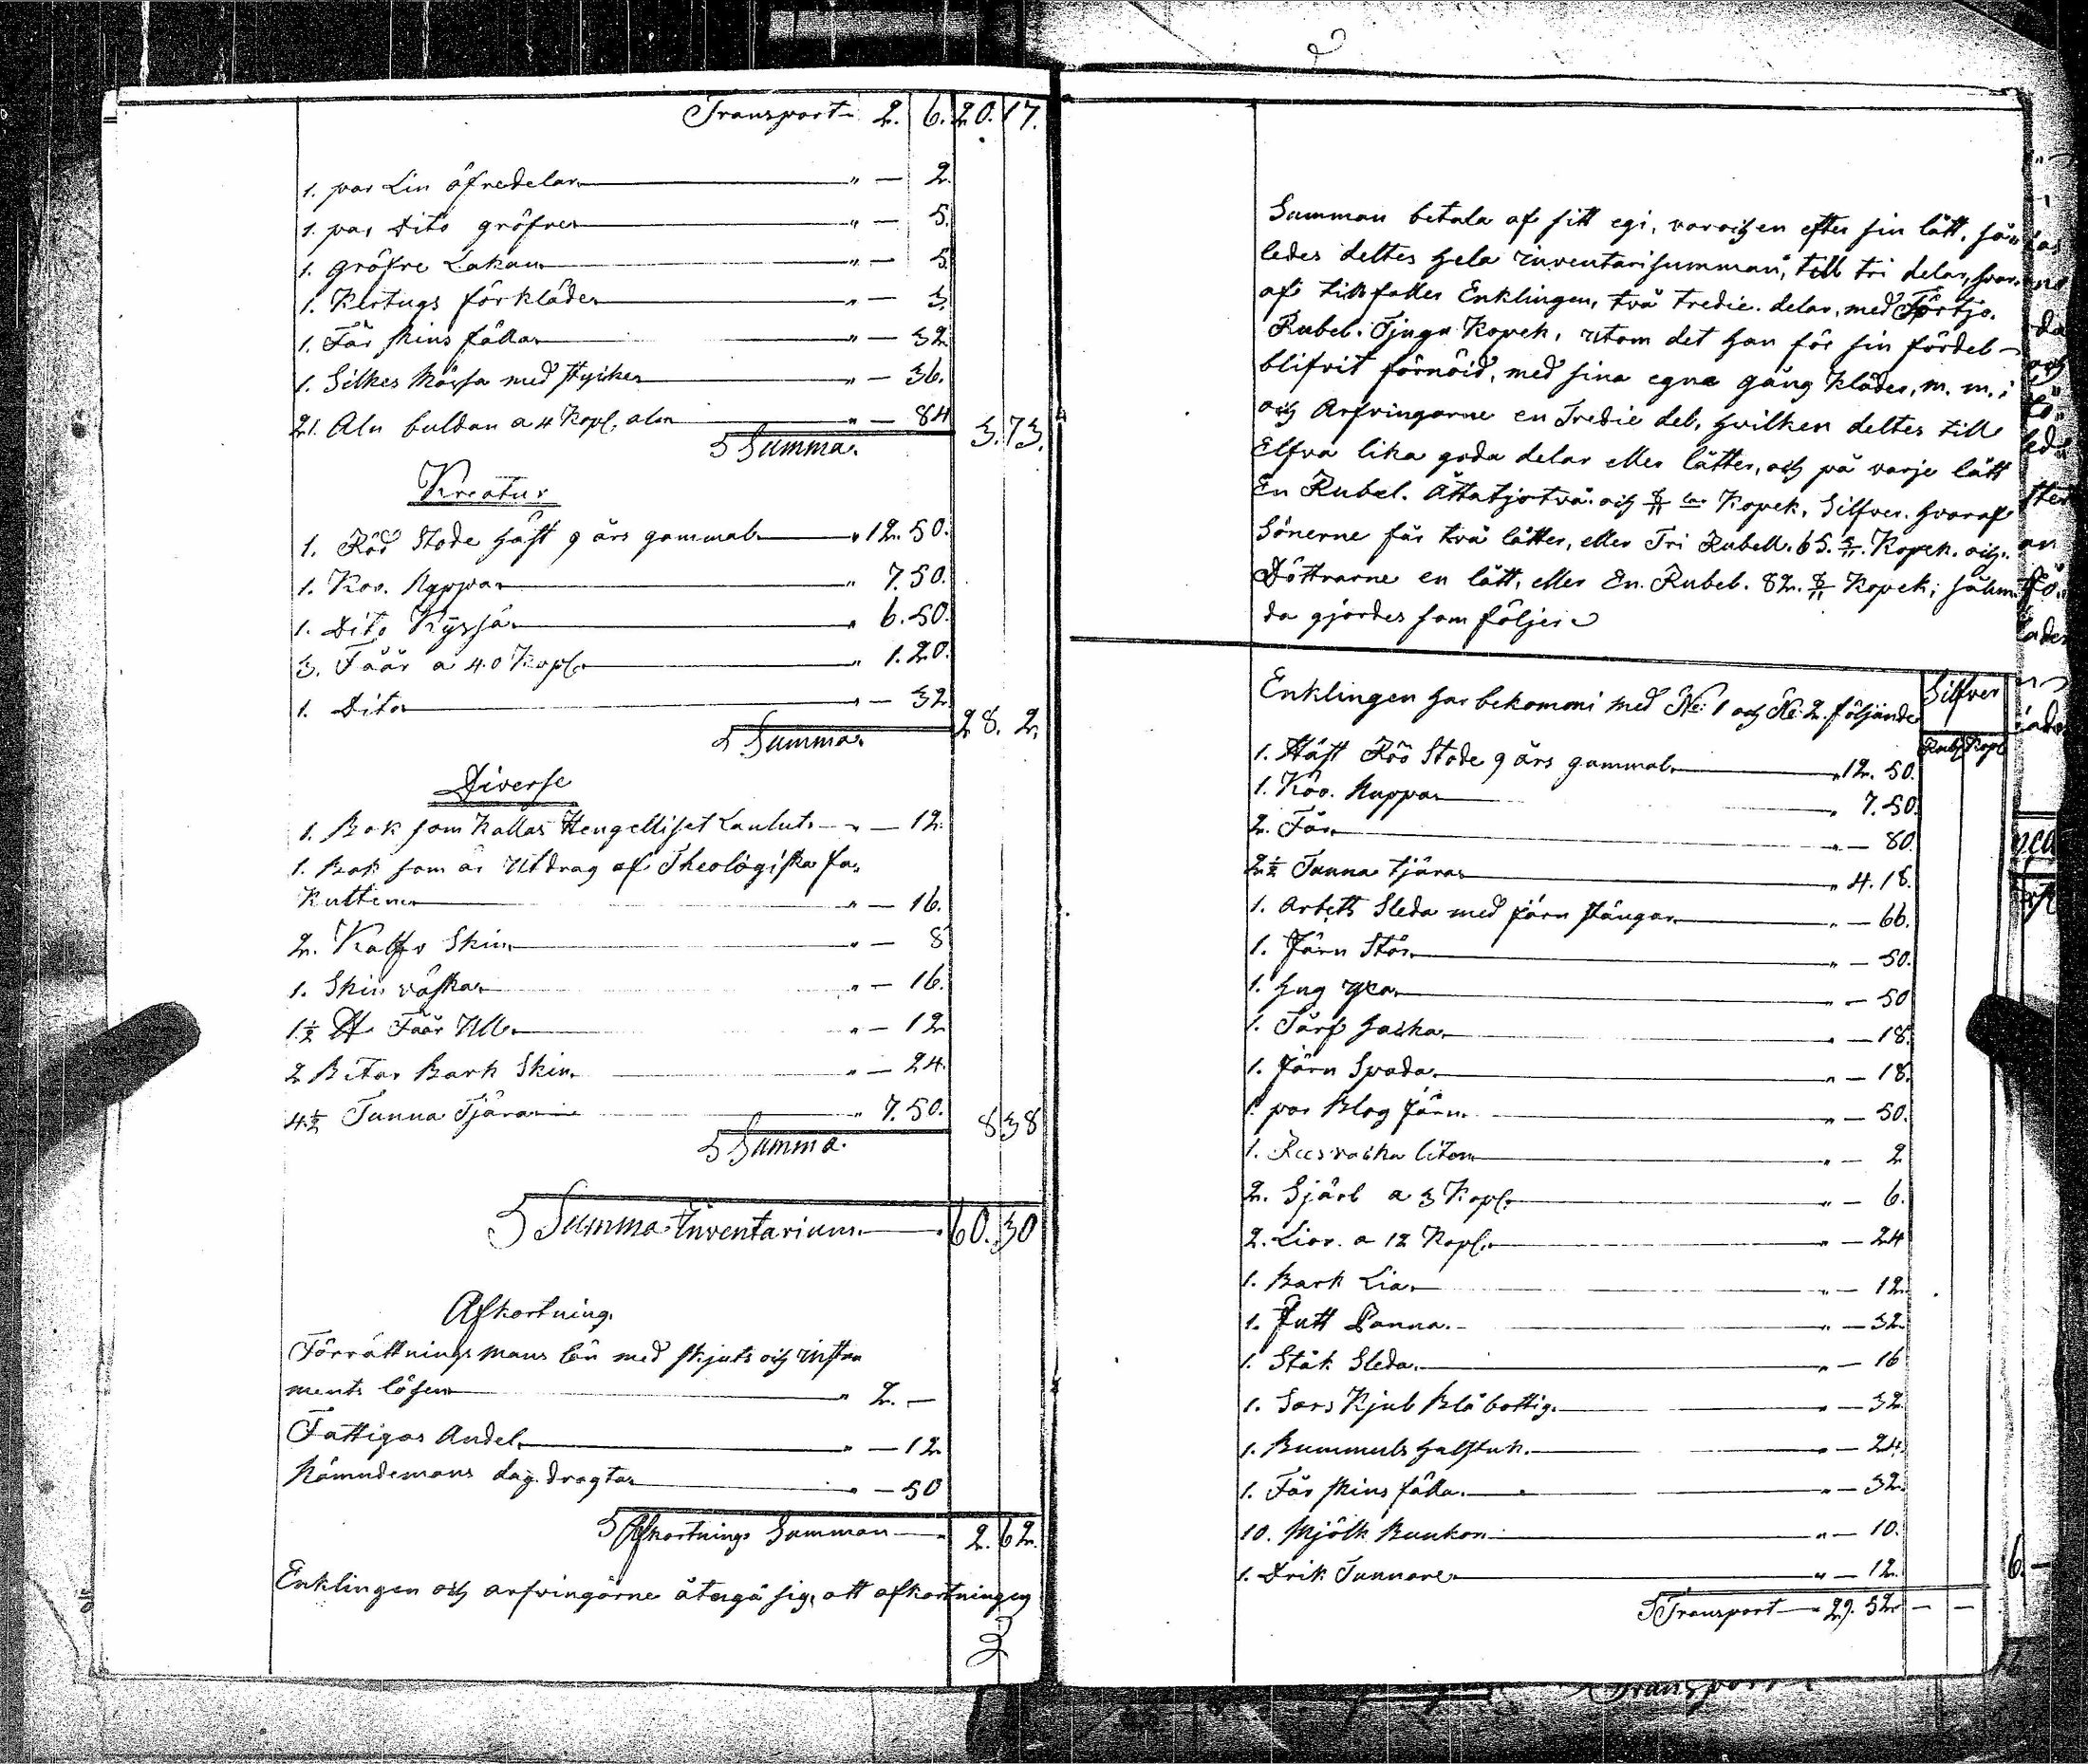 Transport 2. 6. 20. 17.
1. par Lin öfredelar " — 2.
1. par Dito gröfre " — 5.
1. gröfre Lakan " — 5.
1. förkläde " — 3.
1. Får skins fälla " — 32
1. Silkes mössa med stycke " — 36.
21. Aln buldan a 4 Kop. aln " — 84
Summa. 3. 73.
Kreatur
1. Röd Stode häst 9 års gammal " 12. 50.
1. Koo. " 7. 50.
1. Dito " 6. 50.
3. Fåår a 40 Kop. " 1. 20.
1. Dito " — 32
Summa 28. 2.
Diverse
1. Bok som kallas Hengelliset Laulut " — 12.
1. Bok som är Utdrag af Theologiska fa-
kulten " — 16.
2. Kalfv Skin " — 8
1. Skin väska " — 16.
1½ ℔ Fåår Ull " — 12
2 Bitar Bark Skin " — 24.
4½ Tunna Tjära " 7. 50.
Summa. 8 38
Summa Inventarium 60. 30
Afkortning.
Förrättnings mans lön med skjuts och instru
ments lösen " 2. —
Fattigas Andel " — 12
Nämndemans dag dragta " — 50
Afkortnings Summan 2. 62.
Enklingen och arfvingarne åtaga sig, att afkortningen
2
Summan betala af sitt egi, var och en efter sin lått, så-
ledes deltes hela inventarisumman, till tri delar, hvar-
af tillfaller Enklingen, två tredie delar, med Förtjo.
Rubel. Tjugu Kopek, utom det han för sin fördel
blifvit förnöid, med sina egna gång kläder, m. m.;
och Arfvingarne en Tredie del, hvilken deltes till
Elfva lika goda delar eller låtter, och på varje lått
En Rubel. Åttatjotvå och 8/11 Kopek, Silfver. hvaraf
Sönerne får två låtter, eller Tri Rubell. 65. 5/11. Kopek. och
Döttrarne en lått, eller En Rubel. 82. 8/11 Kopek; såhun
da gjordes som följer
Enklingen har bekommi med No: 1 och No: 2. följande Silfver
Rub Kop
1. Häst Röö Stode 9 års gammal " 12. 50.
1. Koo. " 7. 50.
2. Får " — 80.
2½ Tunna tjära " 4. 18.
1. Arbets Sleda med järn stänger " — 66.
1. Järn Stör " — 50.
1. hug yxa " — 50
1. Tärf hacka " — 18.
1. Järn Spada " — 18.
1. par Plog järn " — 50.
1. liten " — 2
2. Sjärl a 3 Kop. " — 6.
2. Liar a 12 Kop. " — 24
1. Bark Lia " — 12.
1. Jutt Panna " — 32
1. Ståk Sleda " — 16
1. Sars Kjul " — 32
1. Bummuls halstuk " — 24.
1. Får skins fälla " — 32.
10. Mjölk Bunkar " — 10.
1. Drik Tunnare " — 12.
Transport 29. 52 — —